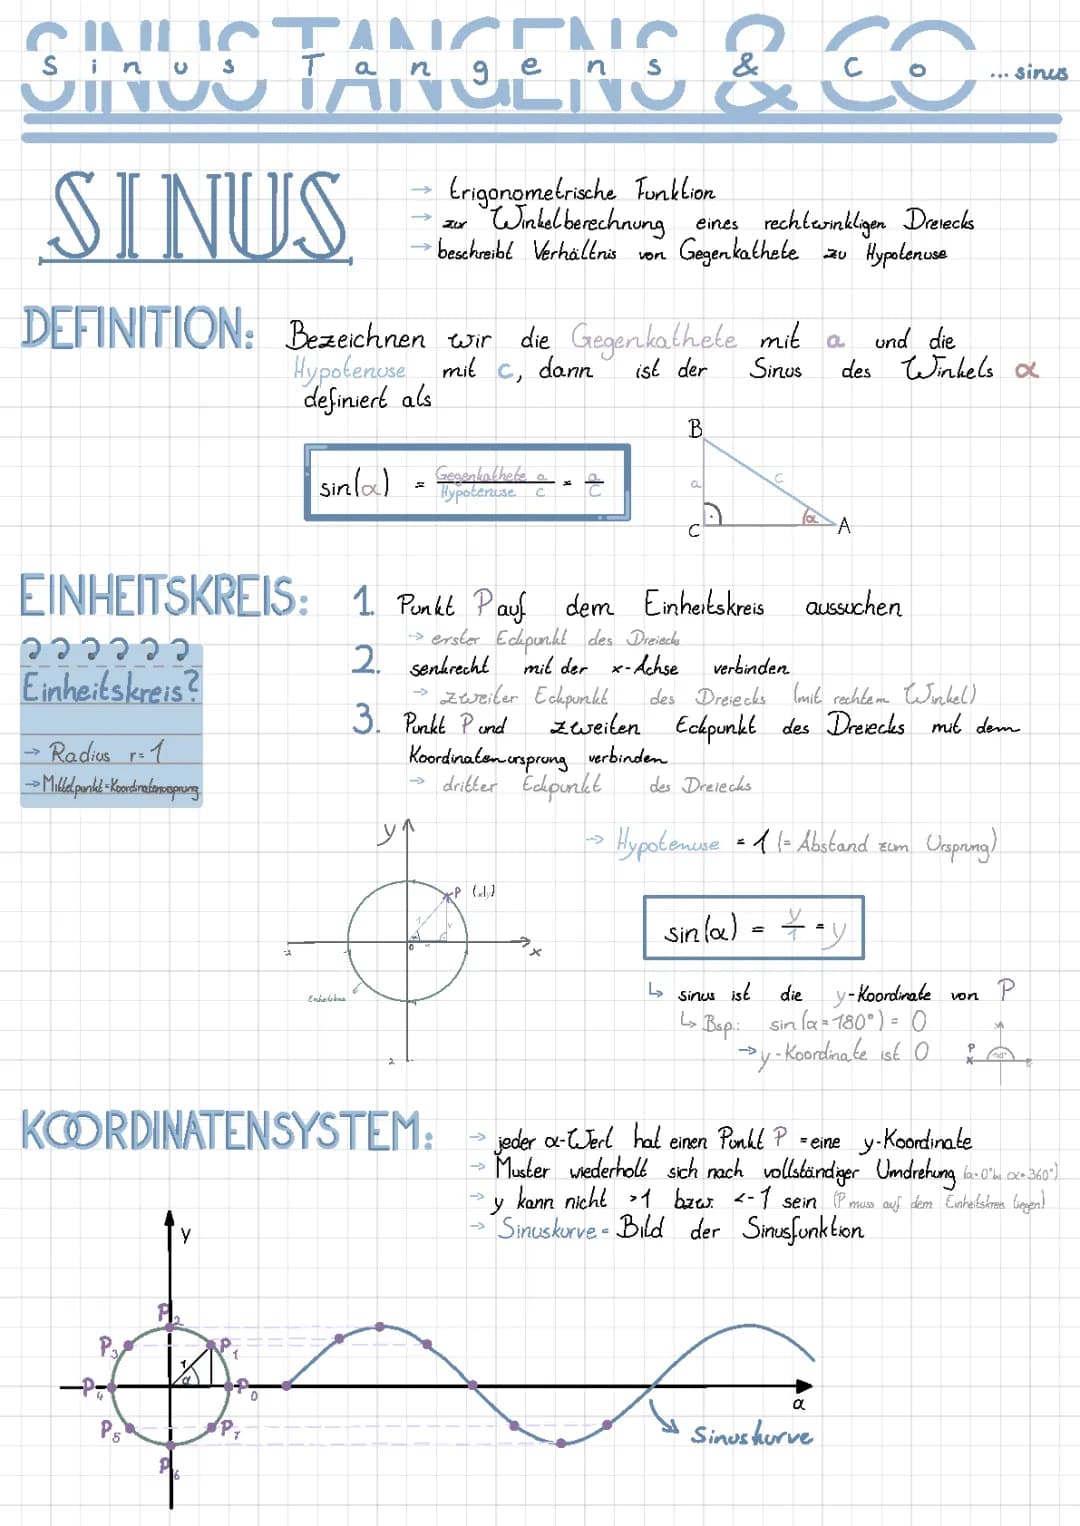 SINUS TANGENS & CO
Sinus Tangens & Co ... sinus
SINUS
→ trigonometrische Funktion
→ zur Winkelberechnung eines rechtwinkligen Dreiecks
→ beschreibt Verhältnis von Gegenkathete zu Hypotenuse
DEFINITION:
Bezeichnen wir die Gegenkathete mit a und die
Hypotenuse mit c, dann ist der Sinus des Winkels α
definiert als
sin(α) = Gegenkathete a / Hypotenuse c = a/c
B
a
c
C
α
A
EINHEITSKREIS:
1. Punkt P auf dem Einheitskreis aussuchen
→ erster Eckpunkt des Dreiecks
2. senkrecht mit der x-Achse verbinden
→ zweiter Eckpunkt des Dreiecks (mit rechtem Winkel)
3. Punkt P und zweiten Eckpunkt des Dreiecks mit dem
Koordinatenursprung verbinden
→ dritter Eckpunkt des Dreiecks
Einheitskreis?
→ Radius r=1
→ Mittelpunkt=Koordinatenursprung
y
P (x|y)
x
0
Einheitskreis
→ Hypotenuse = 1 (= Abstand zum Ursprung)
sin(α) = y/1 = y
↳ sinus ist die y-Koordinate von P
↳ Bsp.: sin(α=180°) = 0
→ y-Koordinate ist 0
P
KOORDINATENSYSTEM:
→ jeder α-Wert hat einen Punkt P = eine y-Koordinate
→ Muster wiederholt sich nach vollständiger Umdrehung (α=0° bis α=360°)
→ y kann nicht >1 bzw. <-1 sein (P muss auf dem Einheitskreis liegen)
→ Sinuskurve = Bild der Sinusfunktion
y
P2
P3
P1
1
α
P4
P0
α
P5
P7
Sinuskurve
P6